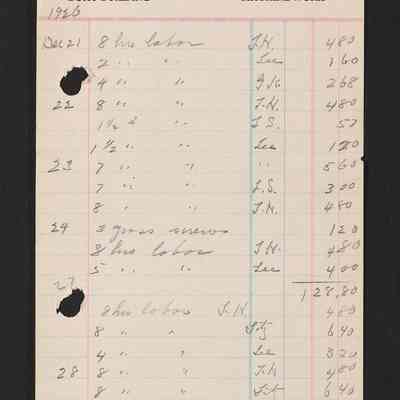 1926
Dec 21 8 hrs labor T.H. 480
2 " " Lee 160
4 " " 268
22 8 " " T.H. 480
1 1/2 " " L.S. 57
1 1/2 " " Lee 120
23 7 " " " 560
7 " " L.S. 300
8 " " T.H. 480
24 3 gross screws 120
8 hrs labor T.H. 480
5 " " Lee 400
128,80
27 8 hrs labor T.H. 480
8 " " 640
4 " " Lee 320
28 8 " " T.H. 480
8 " " 640